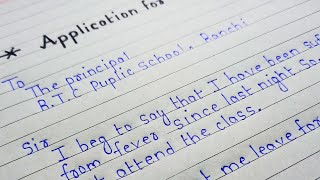 * Application for
To
The principal
R.T.C Puplic school. Ranchi
Sir
I beg to say that I have been suf
from fever since last night So.
attend the class.
t me leave for